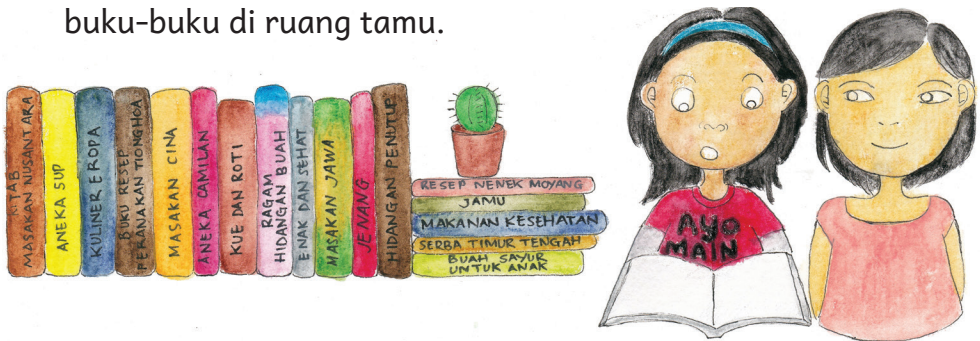 buku-buku di ruang tamu.
KITAB
MASAKAN NUSANTARA
ANEKA SUP
KULINER EROPA
BUKU RESEP
PERANAKAN TIONGHOA
MASAKAN CINA
ANEKA CAMILAN
KUE DAN ROTI
RAGAM
HIDANGAN BUAH
ENAK DAN SEHAT
MASAKAN JAWA
JENANG
HIDANGAN PENUTUP
RESEP NENEK MOYANG
JAMU
MAKANAN KESEHATAN
SERBA TIMUR TENGAH
BUAH SAYUR
UNTUK ANAK
AYO
MAIN